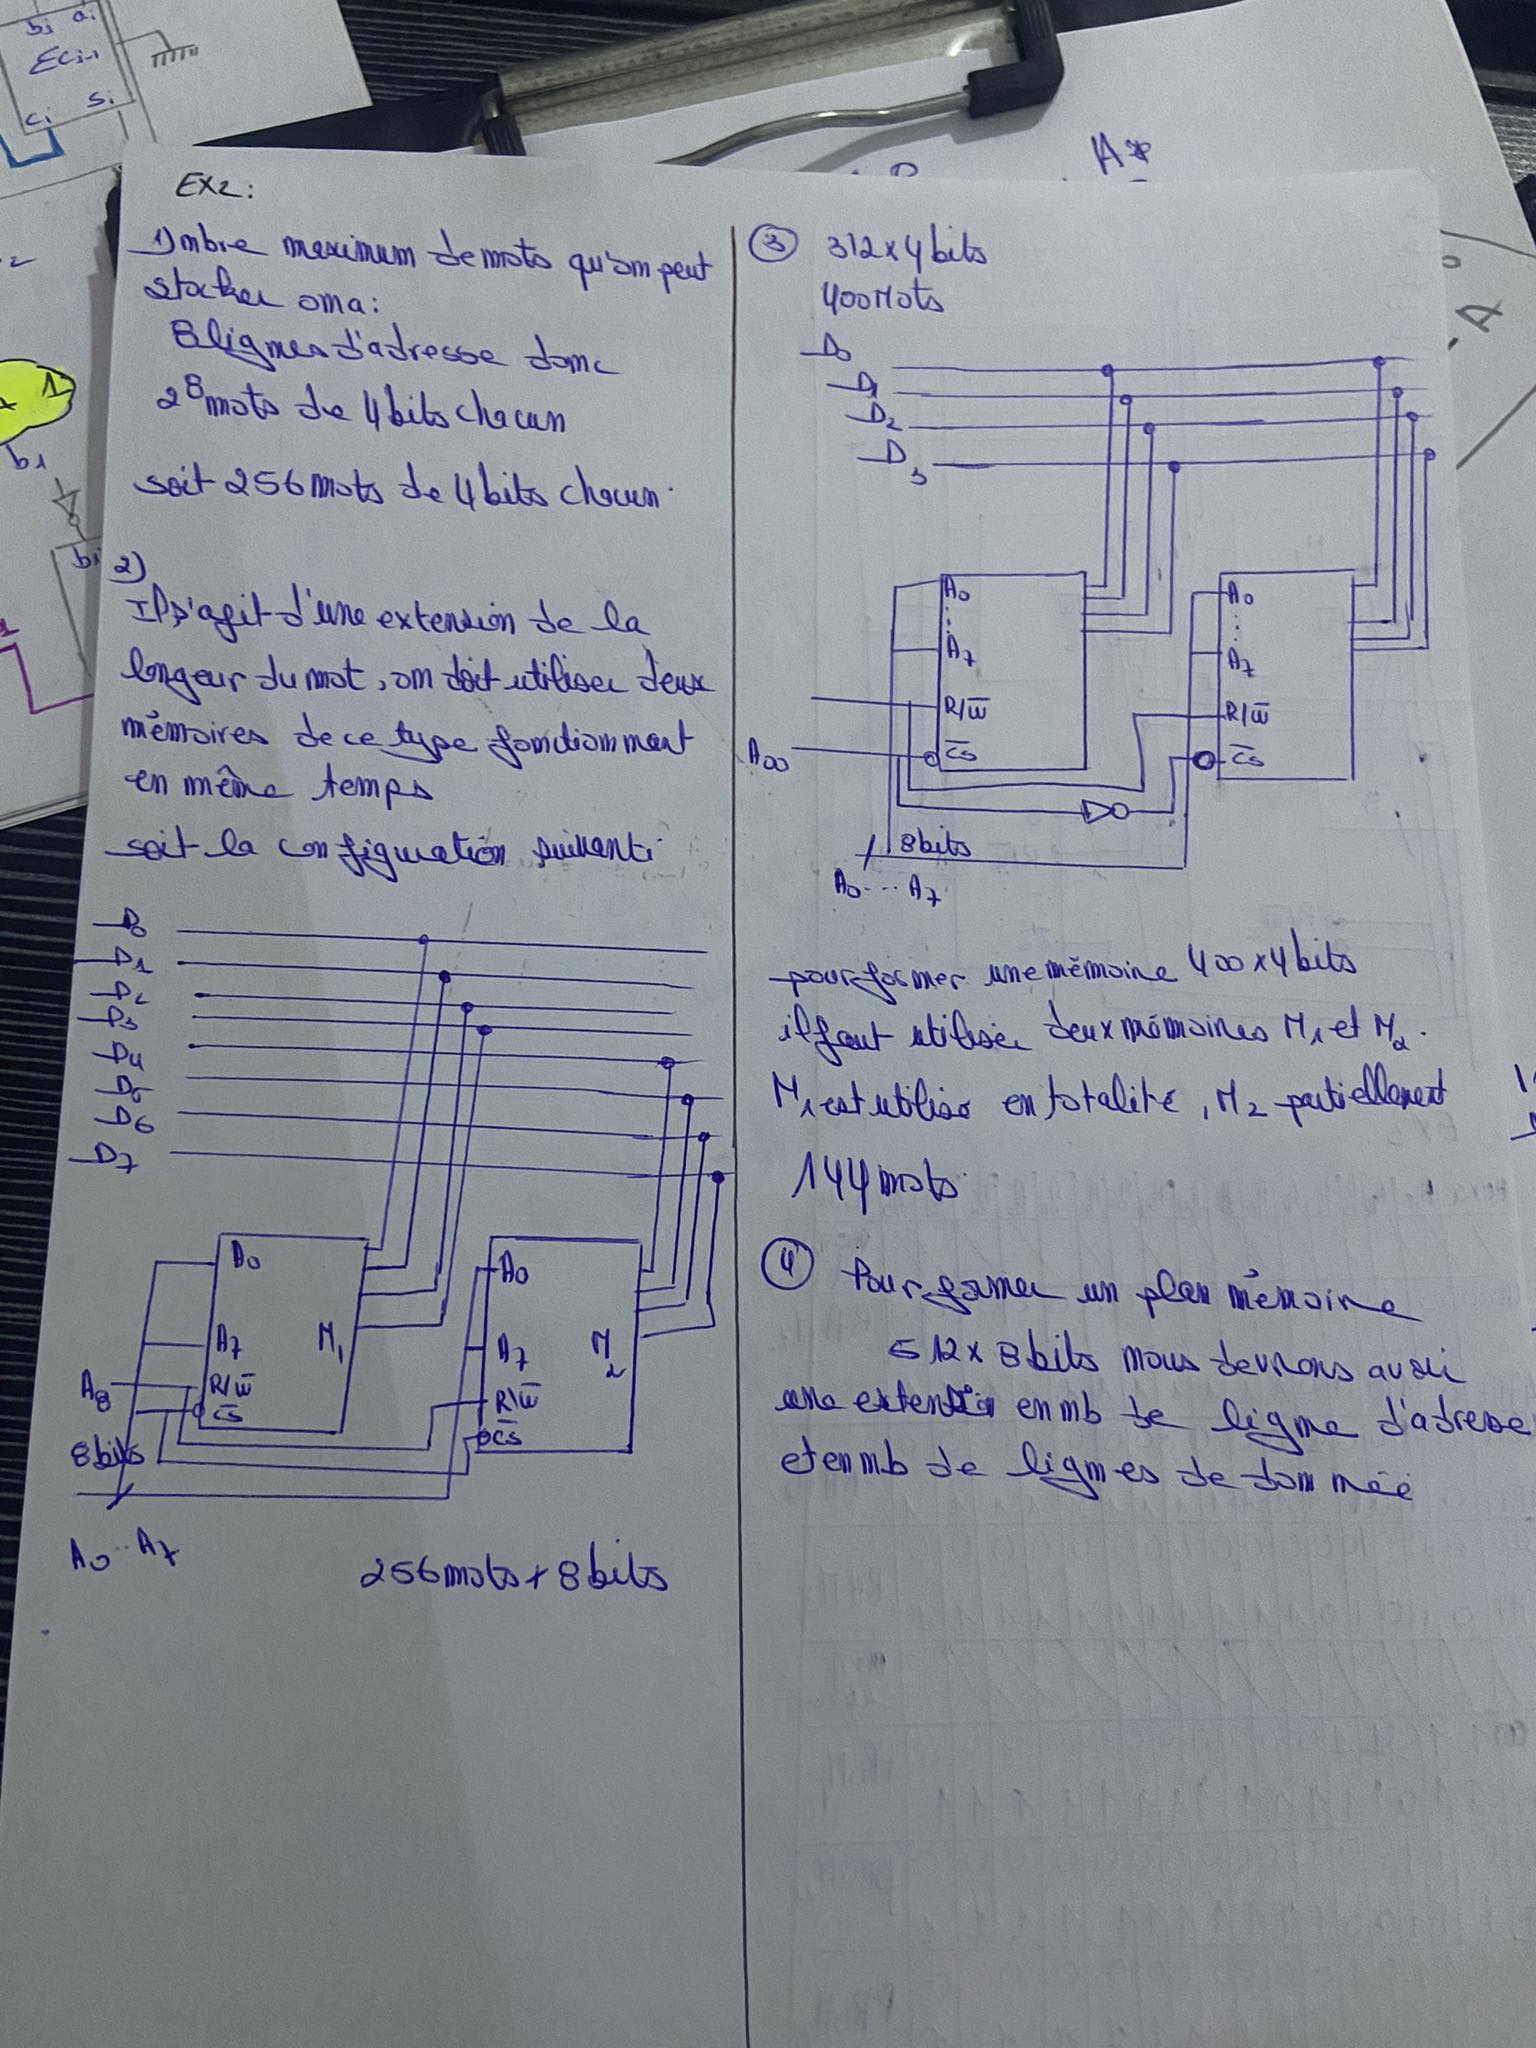 bi ai
ECi-1
ci si
A*
EX2:
1) nbre maximum de mots qu'on peut
stocker ona:
8 lignes d'adresse donc
2⁸ mots de 4 bits chacun
soit 256 mots de 4 bits chacun.
2)
Il s'agit d'une extension de la
longeur du mot, on doit utiliser deux
mémoires de ce type fonctionnant
en même temps
soit la configuration suivante:
D0
D1
D2
D3
D4
D5
D6
D7
A0
A7
M1
A8
R/W̅
C̅S̅
A0
A7
M2
R/W̅
C̅S̅
8bits
A0 .. A7
256 mots + 8 bits
③ 312 x 4 bits
400 Mots
D0
D1
D2
D3
A0
A7
R/W̅
C̅S̅
A0
A7
R/W̅
C̅S̅
A00
8bits
A0 ... A7
pour former une mémoire 400 x 4 bits
il faut utiliser deux mémoires M1 et M2.
M1 est utilisé en totalité, M2 partiellement
144 mots
④ Pour former un plan mémoire
512 x 8 bits nous devrons avoir
une extension en nb de ligne d'adresse
et en nb de lignes de donnéé
1
b1
bi
A